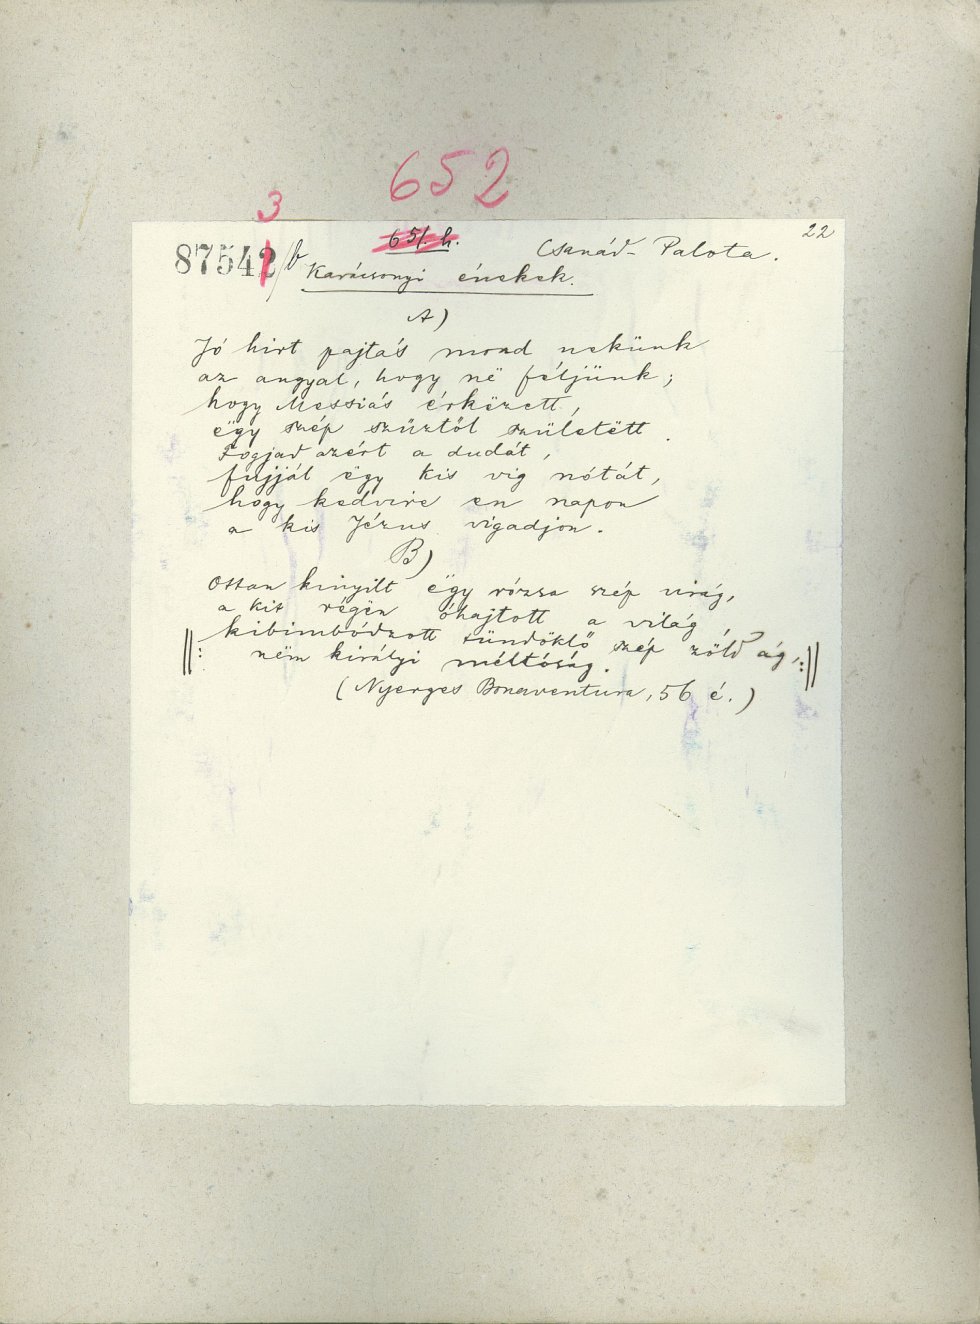 652
3
22
87542/b
651. h.
Csanád-Palota.
Karácsonyi énekek.
A)
Jó hirt pajtás mond nekünk
az angyal, hogy në féljünk;
hogy Messiás érkëzett,
ëgy szép szűztől születëtt.
Fogjad azért a dudát,
fujjál ëgy kis víg nótát,
hogy kedvire en napon
a kis Jézus vigadjon.
B)
Ottan kinyilt ëgy rózsa szép virág,
a kit régën óhajtott a világ,
||: kibimbódzott tündöklő szép zöld ág, :||
nëm királyi méltóság.
(Nyerges Bonaventura, 56 é.)